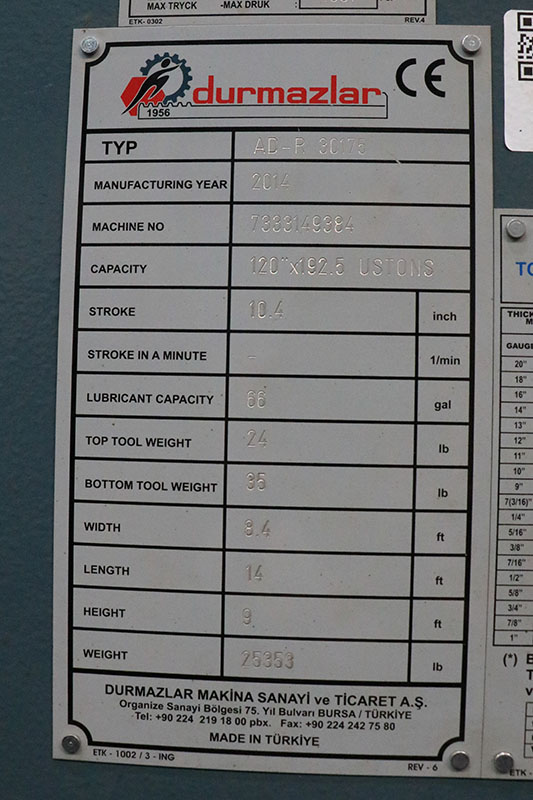 MAX TRYCK -MAX DRUK :
ETK- 0302 REV.4
durmazlar
1956
CE
TYP AD-R 30175
MANUFACTURING YEAR 2014
MACHINE NO 7383149384
CAPACITY 120"x192.5 USTONS
STROKE 10.4 inch
STROKE IN A MINUTE - 1/min
LUBRICANT CAPACITY 66 gal
TOP TOOL WEIGHT 24 lb
BOTTOM TOOL WEIGHT 35 lb
WIDTH ft
LENGTH 14 ft
HEIGHT 9 ft
WEIGHT 25353 lb
DURMAZLAR MAKİNA SANAYİ ve TİCARET A.Ş.
Organize Sanayi Bölgesi 75. Yıl Bulvarı BURSA / TÜRKİYE
Tel: +90 224 219 18 00 pbx. Fax: +90 224 242 75 80
MADE IN TÜRKİYE
ETK - 1002 / 3 - ING REV - 6
THICK
GAUGE
20"
18"
16"
14"
13"
12"
11"
10"
9"
7(3/16)"
1/4"
5/16"
3/8"
7/16"
1/2"
5/8"
3/4"
7/8"
1"
(*)
ETK -